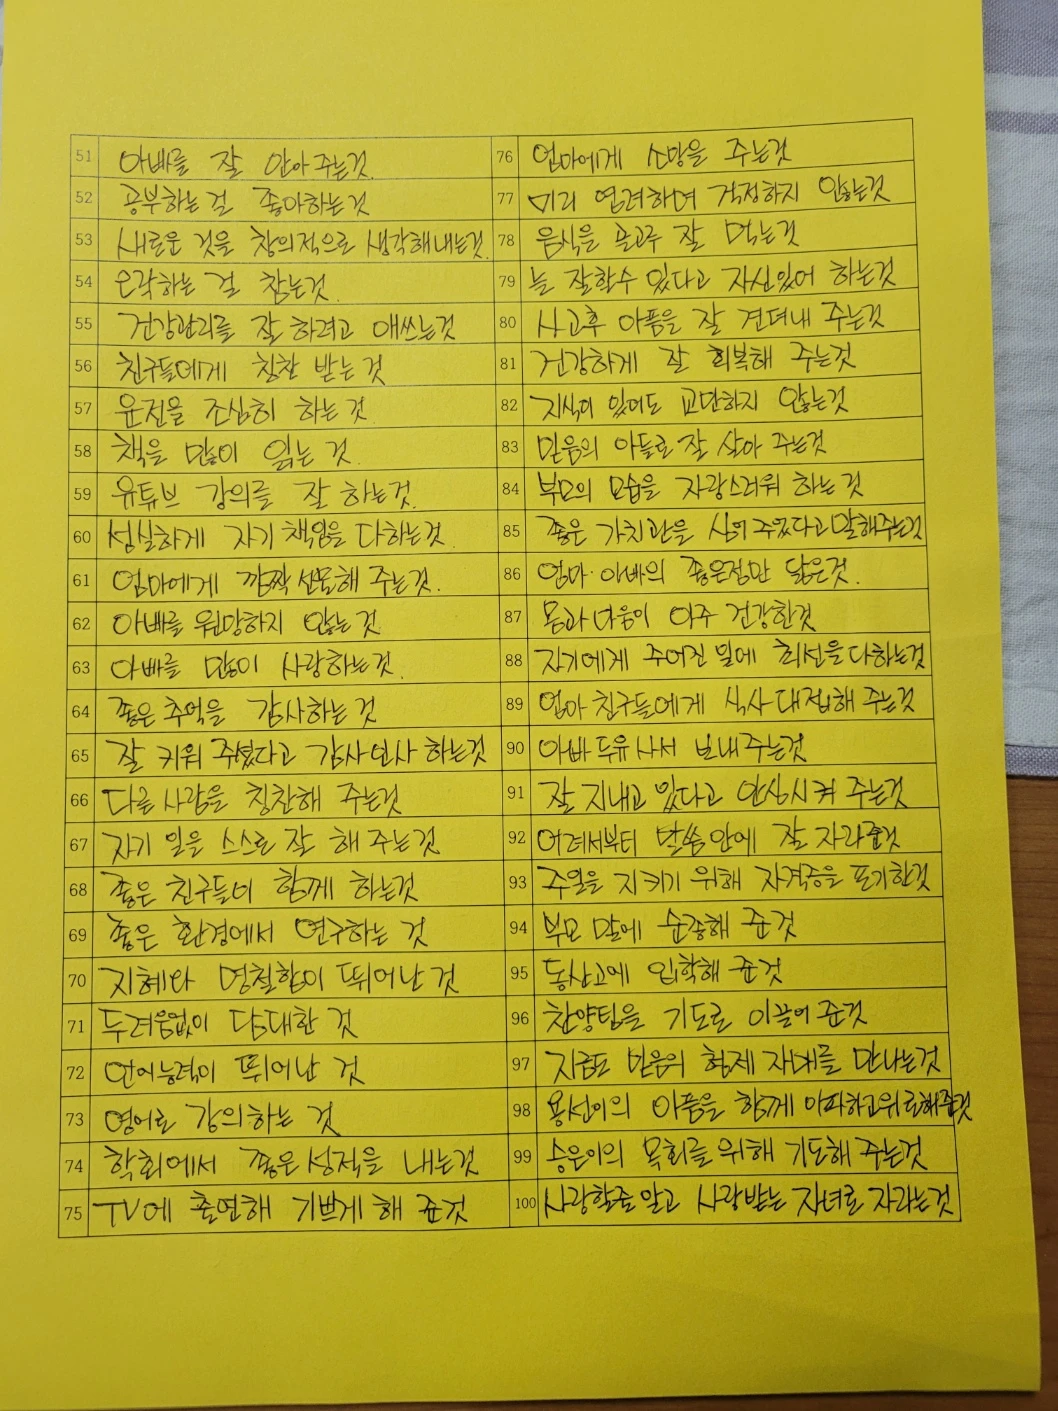 51 아빠를 잘 안아 주는것.
52 공부하는 걸 좋아하는것
53 새로운 것을 창의적으로 생각해 내는것.
54 운전하는 걸 참는것.
55 건강관리를 잘 하려고 애쓰는것
56 친구들에게 칭찬 받는 것
57 운전을 조심히 하는 것
58 책을 많이 읽는 것.
59 유튜브 강의를 잘 하는것.
60 성실하게 자기 책임을 다하는것.
61 엄마에게 깜짝 선물해 주는것.
62 아빠를 원망하지 않는 것
63 아빠를 많이 사랑하는것.
64 좋은 추억을 감사하는 것
65 잘 키워 주셨다고 감사 인사 하는것
66 다른 사람을 칭찬해 주는것
67 자기 일을 스스로 잘 해 주는 것
68 좋은 친구들이 함께 하는것
69 좋은 환경에서 연구하는 것
70 지혜와 명철함이 뛰어난 것
71 두려움없이 담대한 것
72 언어능력이 뛰어난 것
73 영어로 강의하는 것
74 학회에서 좋은 성적을 내는것
75 TV에 출연해 기쁘게 해 준것
76 엄마에게 소망을 주는것
77 미리 염려하며 걱정하지 않는것
78 음식을 골고루 잘 먹는것
79 늘 잘할수 있다고 자신있어 하는것
80 사고후 아픔을 잘 견뎌내 주는것
81 건강하게 잘 회복해 주는것
82 지식이 있어도 교만하지 않는것
83 믿음의 아들로 잘 살아 주는것
84 부모의 모습을 자랑스러워 하는 것
85 좋은 가치관을 심어 주었다고 말해주는것
86 엄마·아빠의 좋은점만 닮은것.
87 몸과 마음이 아주 건강한것
88 자기에게 주어진 일에 최선을 다하는것
89 엄마 친구들에게 식사 대접해 주는것
90 아빠 두유 사서 보내 주는것
91 잘 지내고 있다고 안심시켜 주는것
92 어려서부터 말씀 안에 잘 자라준것
93 주일을 지키기 위해 자격증을 포기한것
94 부모 말에 순종해 준 것
95 동산고에 입학해 준 것
96 찬양팀을 기도로 이끌어 준것
97 지금도 믿음의 형제 자매를 만나는것
98 용선이의 아픔을 함께 아파하고 위로해준것
99 승은이의 목회를 위해 기도해 주는것
100 사랑할줄 알고 사랑받는 자녀로 자라는것